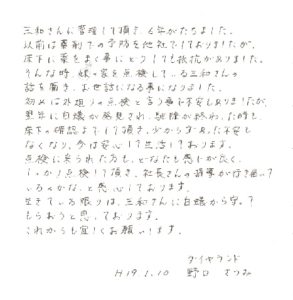 三和さんに管理して頂き、6年がたちました。
以前は薬剤での予防を他社でしておりましたが、
床下に薬をまく事にとうしても抵抗がありました。
そんな時、嫁の家を点検している三和さんの
話を聞き、お世話になる事になりました。
初めは外廻りの点検と言う事で不安もありましたが、
翌年に白蟻が発見され、駆除が終わった時も、
床下の確認までして頂き、少なからずあった不安も
なくなり、今は安心して生活しております。
点検に来られた方も、どなたも感じが良く、
しっかり点検して頂き、社長さんの指導が行き届いて
いるのかな、と感心しております。
生きている限りは、三和さんに白蟻から守って
もらおうと思っております。
これからも宜しくお願いします。
ダイヤランド
H19.1.10 野口 さつみ